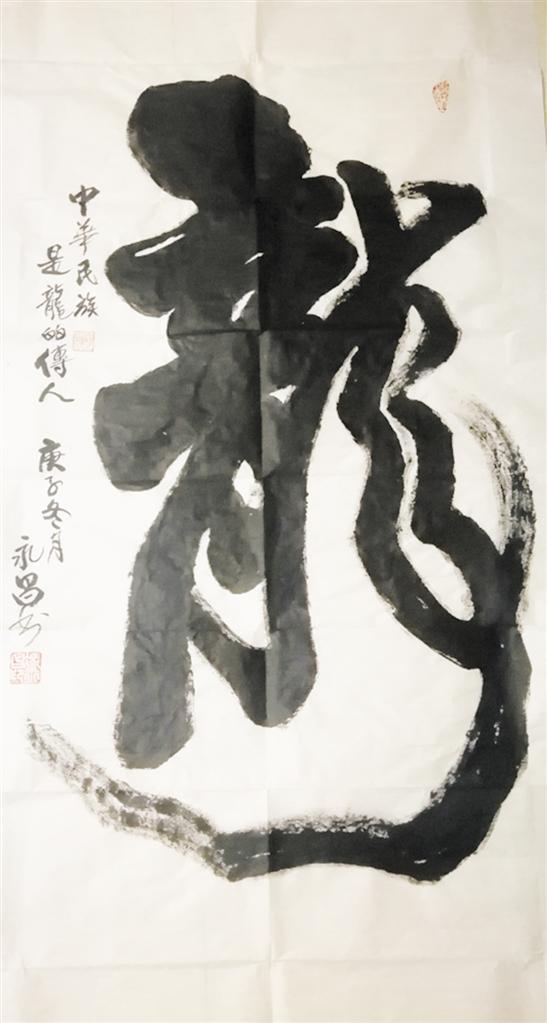 龍
中華民族
是龍的傳人
庚子冬月
永昌书